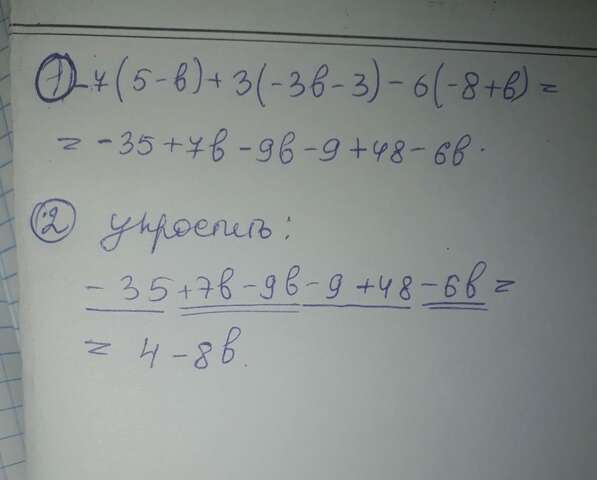 1) -7(5-в)+3(-3в-3)-6(-8+в)=
= -35+7в-9в-9+48-6в.
2) упростить:
-35+7в-9в-9+48-6в=
= 4-8в.